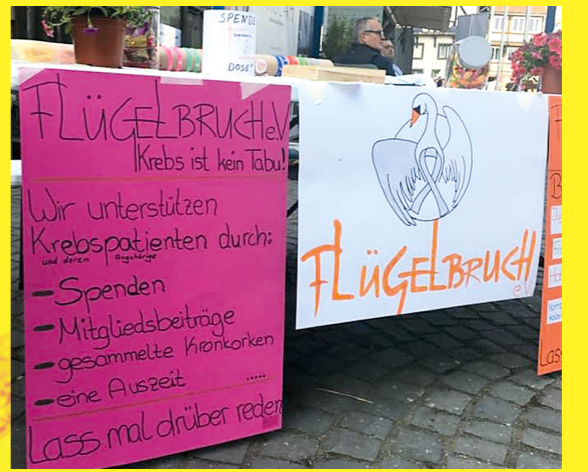 SPENDE
DOSE!
FLÜGELBRUCH eV
Krebs ist kein Tabu!
Wir unterstützen
Krebspatienten durch:
und deren Angehörige
-Spenden
-Mitgliedsbeiträge
-gesammelte Kronkorken
-eine Auszeit .....
Lass mal drüber reden
FLÜGELBRUCH
eV
Lass